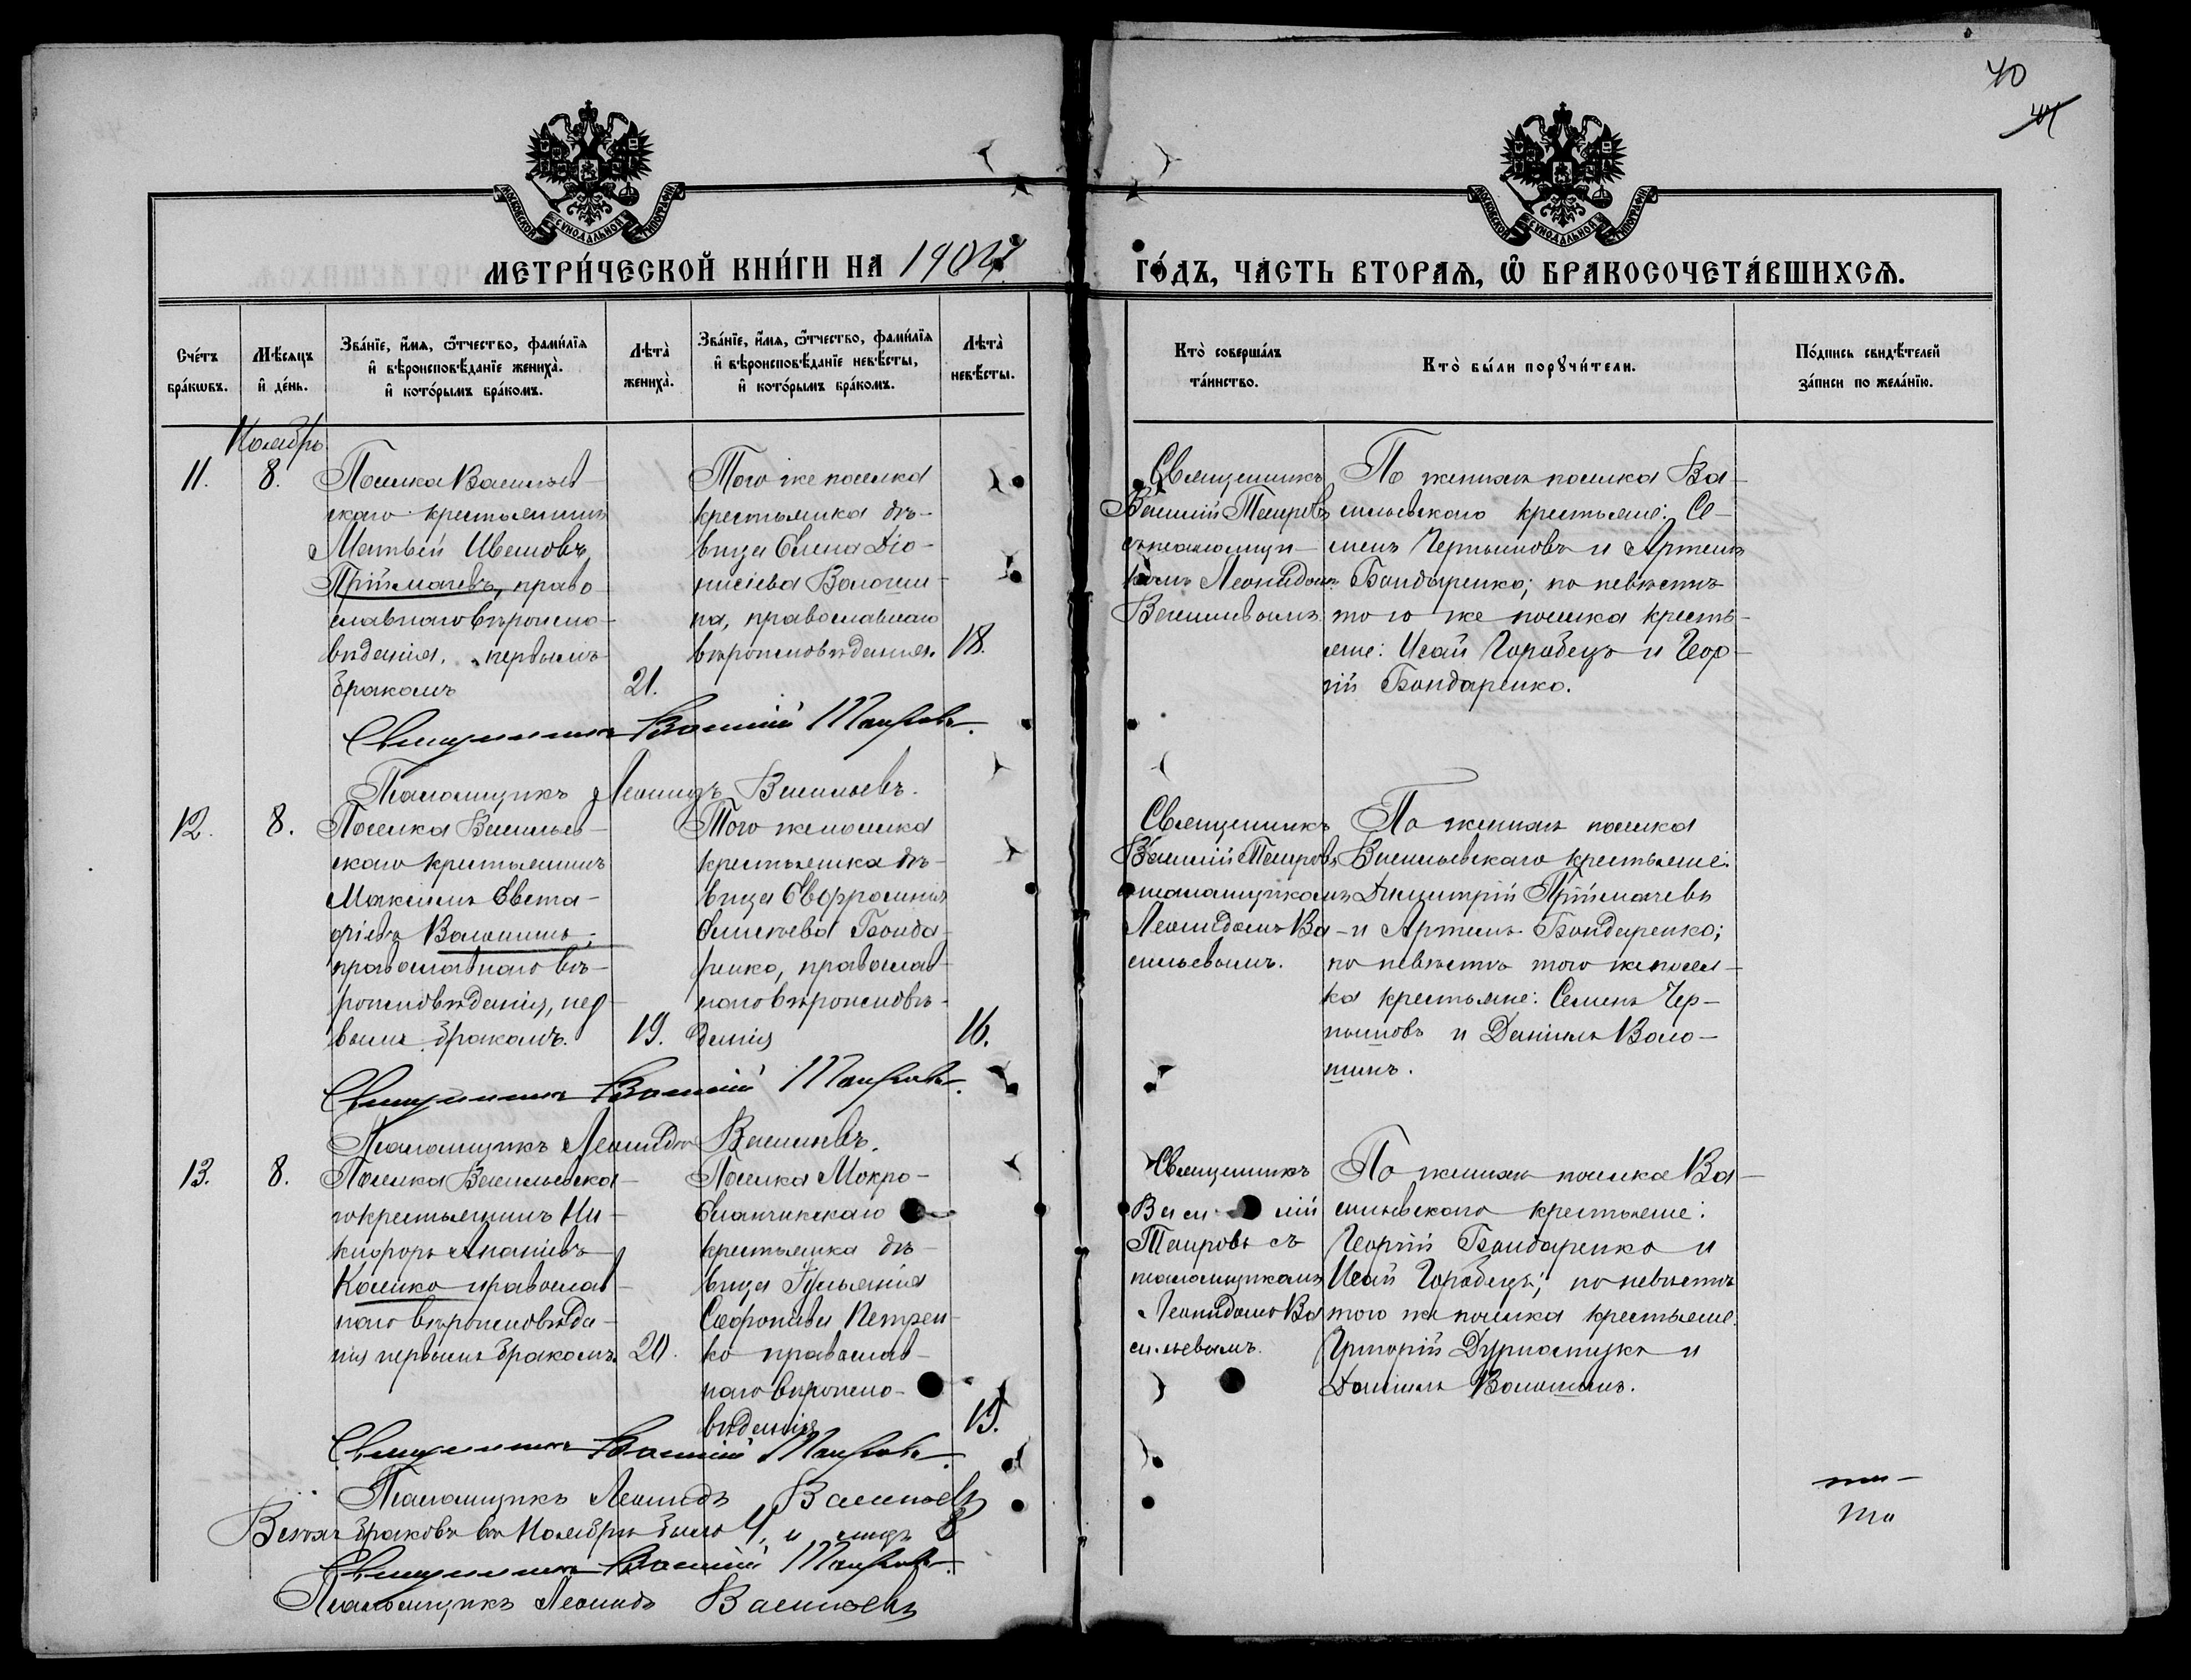 40
41
МОСКОВСКОЙ СѴНОДАЛЬНОЙ ТИПОГРАФІИ
МОСКОВСКОЙ СѴНОДАЛЬНОЙ ТИПОГРАФІИ
МЕТРИ́ЧЕСКОЙ КНИ́ГИ НА 1904
ГО́ДЪ, ЧА́СТЬ ВТОРАѦ, Ѡ҆ БРАКОСОЧЕТА́ВШИХСѦ.
Сче́тъ бра́кѡвъ.
Мѣ́сяцъ и҆ де́нь.
Зва́нїе, и҆́мѧ, ѻ҆́тчество, фами́лїѧ
и҆ вѣроисповѣ́данїе жениха̀.
и҆ кото́рымъ бра́комъ.
Лѣта̀ жениха̀.
Зва́нїе, и҆́мѧ, ѻ҆́тчество, фами́лїѧ
и҆ вѣроисповѣ́данїе невѣ́сты,
и҆ кото́рымъ бра́комъ.
Лѣта̀ невѣ́сты.
Кто̀ соверша́лъ та́инство.
Кто̀ бы́ли порꙋчи́тели.
По́дпись свидѣ́телей
за́писи по жела́нїю.
Ноябрь
11.
8.
Поселка Васильев-
скаго крестьянинъ
Матвѣй Ивановъ
Пріймачевъ, право
славнаго вѣроиспо-
вѣданія, первымъ
бракомъ
21.
Того же поселка
крестьянка дѣ-
вица Елена Діо-
нисіева Волоши-
на, православнаго
вѣроисповѣданія.
18.
Священникъ
Василій Таировъ
съ псаломщи-
комъ Леонидомъ
Васильевымъ
По женихѣ поселка Ва-
сильевскаго крестьяне: Се-
менъ Чернышовъ и Артемъ
Бондаренко; по невѣстѣ
того же поселка кресть-
яне: Исай Горобецъ и Геор-
гій Бондаренко.
Священникъ Василій Таировъ.
Псаломщикъ Леонидъ Васильевъ.
12.
8.
Поселка Васильев-
скаго крестьянинъ
Максимъ Евста-
фіевъ Волошинъ,
православнаго вѣ-
роисповѣданія, пер-
вымъ бракомъ.
19.
Того же поселка
крестьянка дѣ-
вица Евфросинія
Бонда-
ренко, православ-
наго вѣроисповѣ-
данія
16.
Священникъ
Василій Таировъ
псаломщикомъ
Леонидомъ Ва-
сильевымъ.
По женихѣ поселка
Васильевскаго крестьяне:
Димитрій Пріймачевъ
и Артемъ Бондаренко;
по невѣстѣ того же посел-
ка крестьяне: Семенъ Чер-
нышовъ и Даніилъ Воло-
шинъ.
Священникъ Василій Таировъ.
Псаломщикъ Леонидъ Васильевъ.
13.
8.
Поселка Васильевска-
го крестьянинъ Ни-
кифоръ Ананіевъ
Кошко православ-
наго вѣроисповѣда-
нія первымъ бракомъ.
20.
Поселка Мокро-
Еланчикскаго
крестьянка дѣ-
вица Іуліанія
Софроніева Петрен-
ко православ-
наго вѣроиспо-
вѣданія
19.
Священникъ
Василій
Таировъ съ
псаломщикомъ
Леонидомъ Ва
сильевымъ.
По женихѣ поселка Ва-
сильевскаго крестьяне:
Георгій Бондаренко и
Исай Горобецъ; по невѣстѣ
того же поселка крестьяне:
Григорій и
Даніилъ Волошинъ.
Священникъ Василій Таировъ.
Псаломщикъ Леонидъ Васильевъ
Всего браковъ въ Ноябрѣ было 4, и лицъ 8
Священникъ Василій Таировъ.
Псаломщикъ Леонидъ Васильевъ